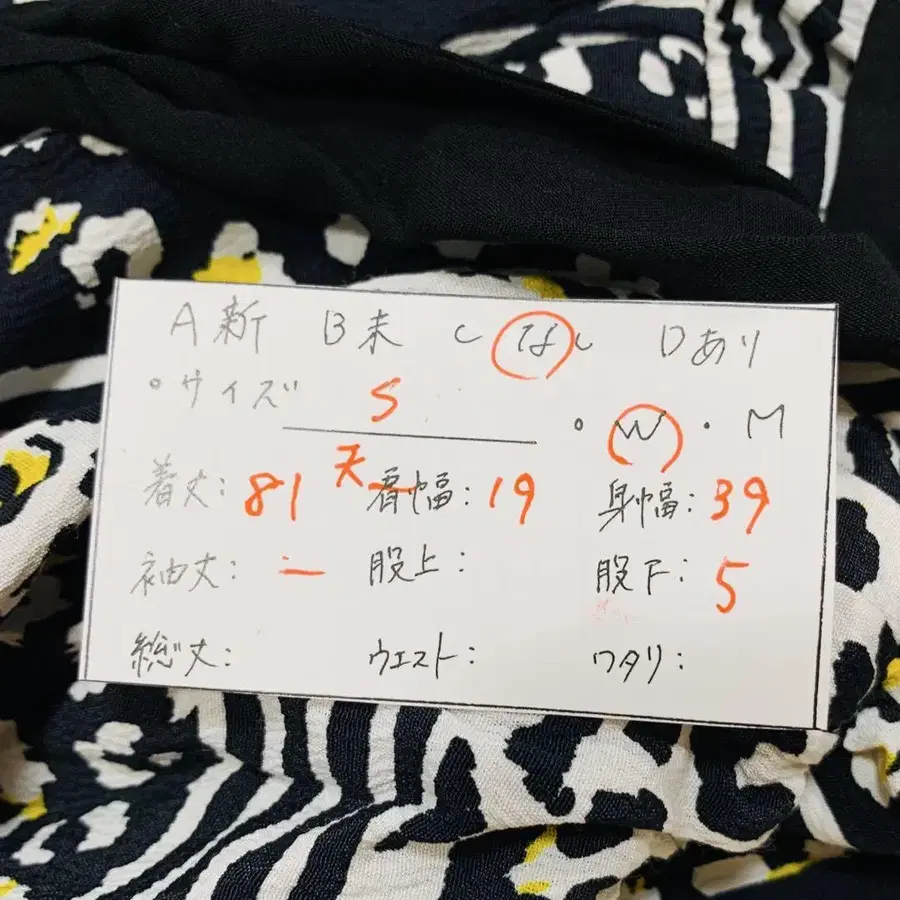 A新 B未 Cなし Dあり
・サイズ S ・W・M
着丈:81 天 肩幅:19 身幅:39
袖丈:ー 股上: 股下:5
総丈: ウエスト: ワタリ: